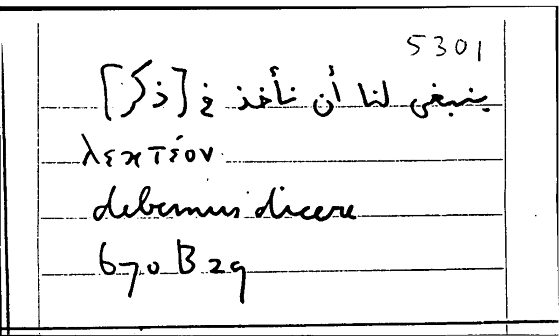 5301
ينبغى لنا أن نأخذ فى [ذكر]
λεκτέον
debemus dicere
670 B 29